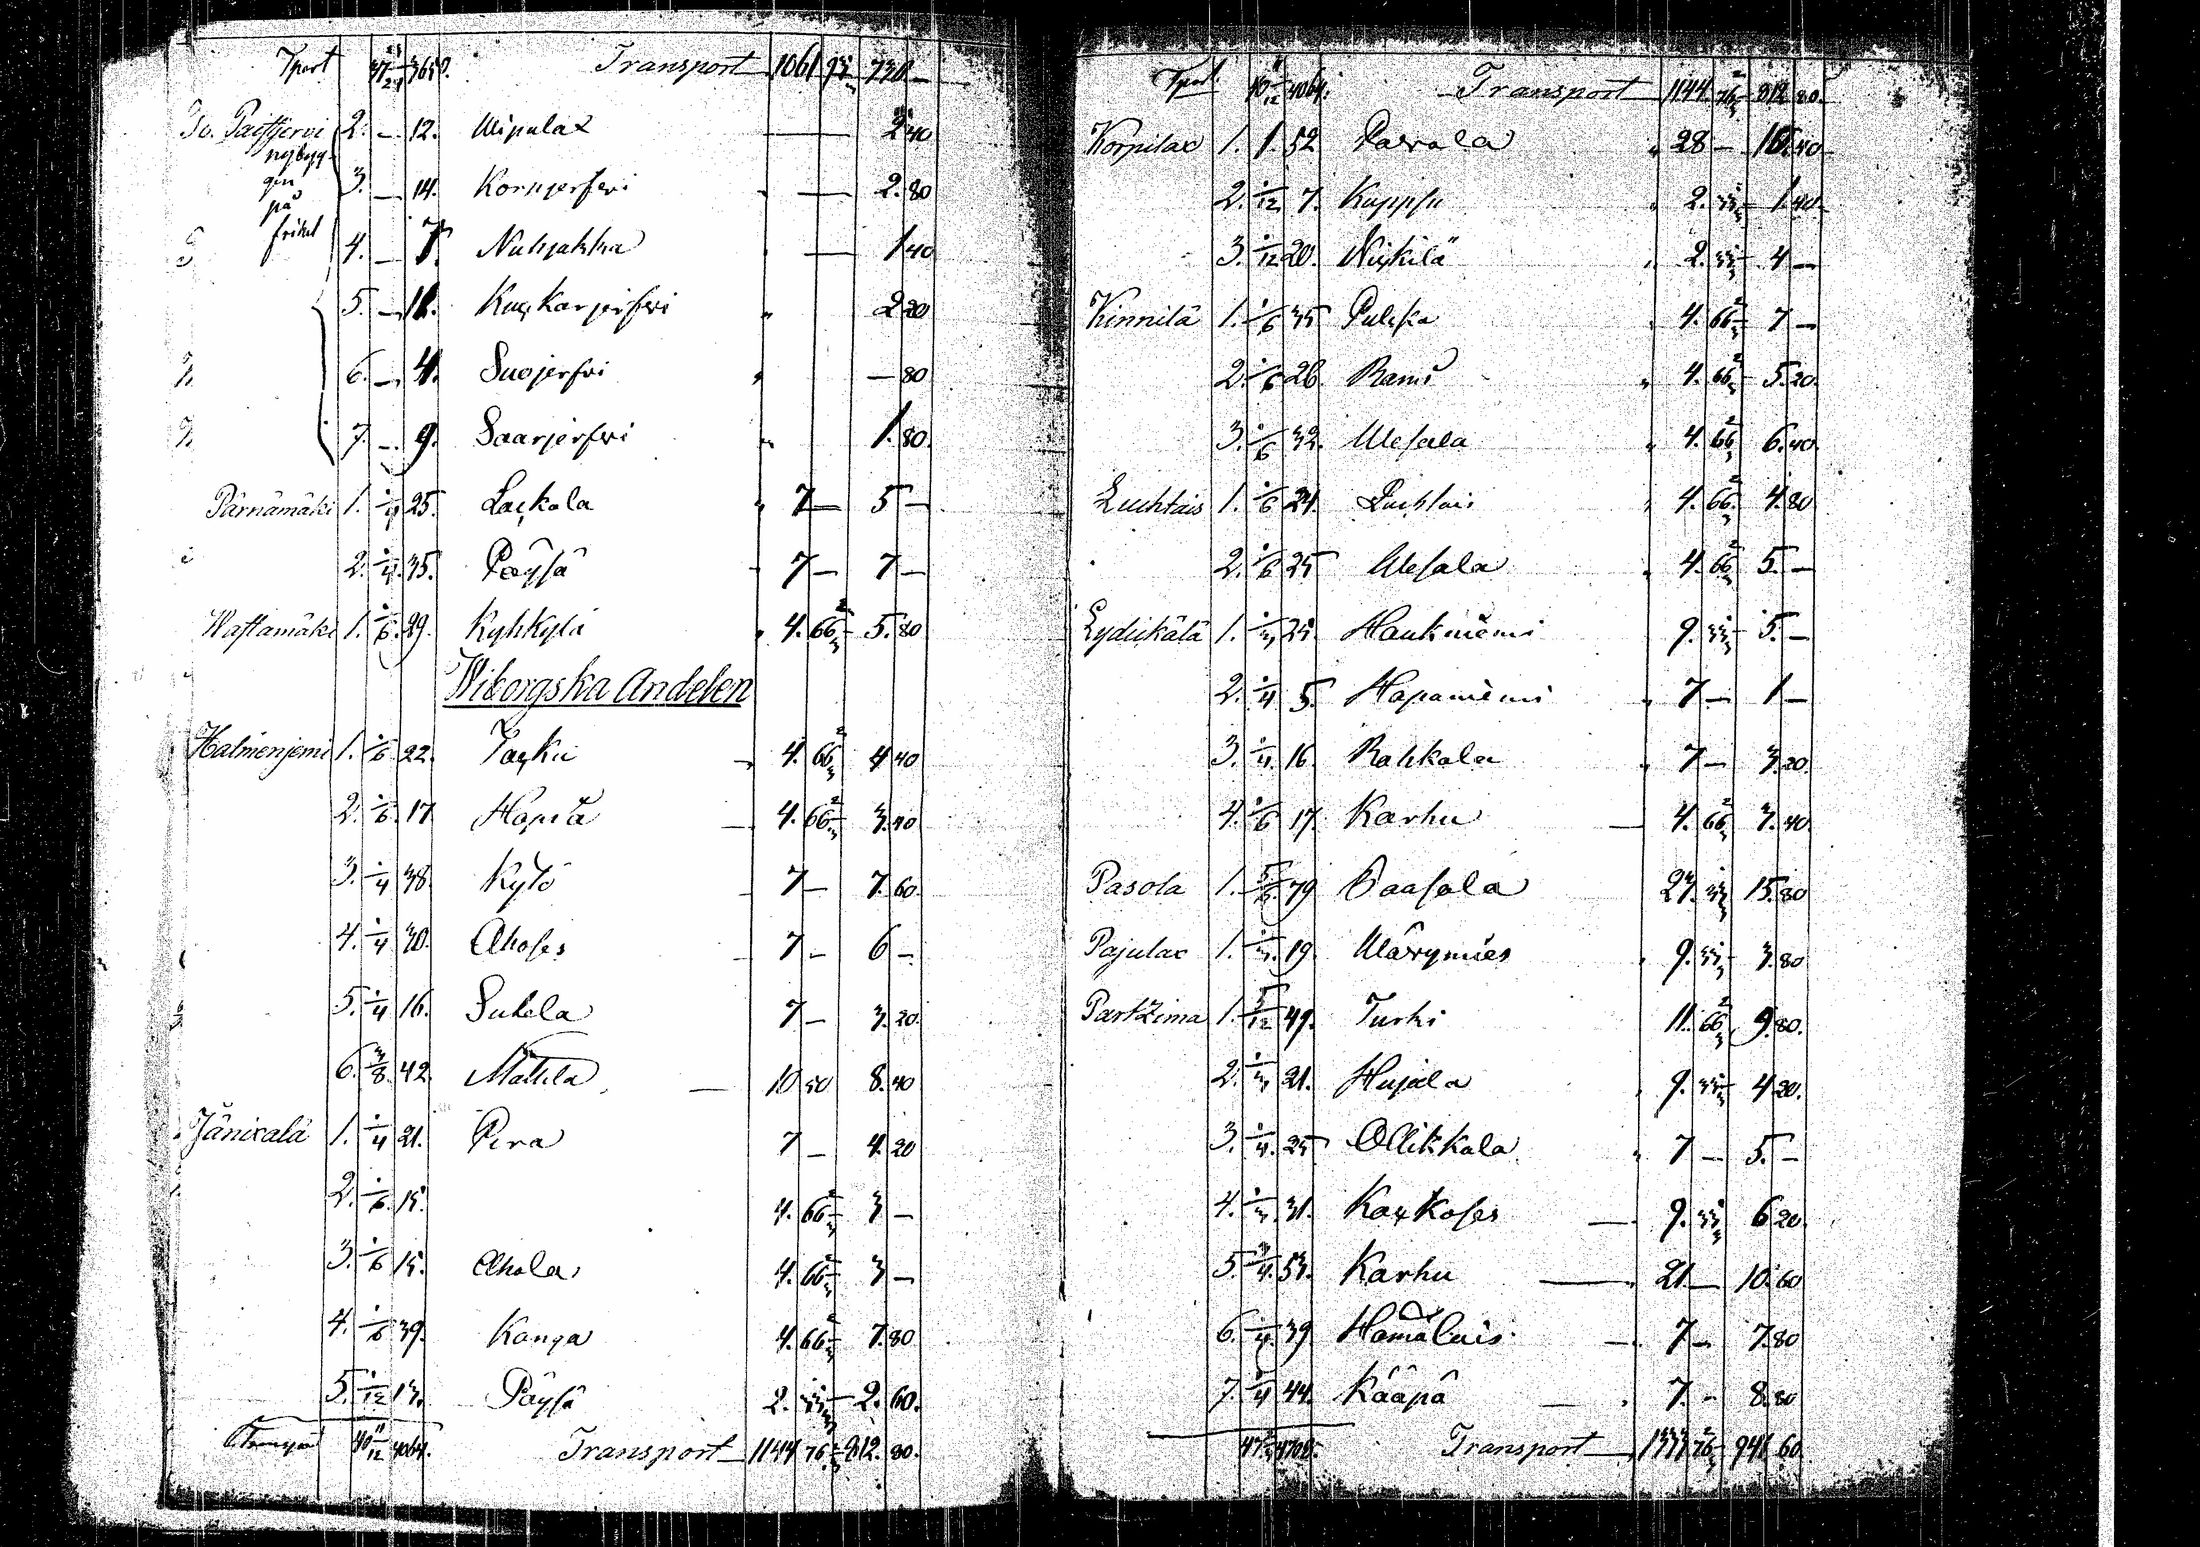 Tport Transport 1061 730 —
Io. Paistjervi 2. — 12. Mipulax — 2 40
nybyg-
gen 3. — 14. Kornjerfwi — 2. 80
på
friht 4. — 7. Nuhjakka — 1 40
5. — 11. Kuxkarjerfwi 2 20
6. — 4. Suojerfwi — 80
7. — 9. Saarjerfwi 1. 80.
Pärnämäki 1. 1/4 25. Laxkala 7 — 5 —
2. 1/4 35. Pöysä 7 — 7 —
Wastamäki 1. 1/6 29. Kyhkylä 4. 66 2/3 5. 80
Wiborgska Andelen
Halmenjemi 1. 1/6 22. Taxku 4. 66 2/3 4 40
2. 1/6 17 Hapiä 4. 66 2/3 3. 40
3. 1/4 38 Kytö 7 — 7. 60
4. 1/4 30. Ahoses 7 — 6 —
5. 1/4 16. Sukela 7 — 3. 20.
6. 3/8 42. Mattila 10 50 8. 40
Jänixälä 1. 1/4 21. Pira 7 — 4. 20
2. 1/6 15. 4. 66 2/3 3 —
3. 1/6 15. Ahola 4. 66 2/3 3 —
4. 1/6 39. Kanga 4. 66 2/3 7. 80
5. 1/12 13. Pöysä 2. 33 1/3 2. 60.
40 11/12 4064. Transport 1144 76 2/3 812. 80.
Tport 40 11/12 4064. Transport 1144 76 2/3 812 80.
Korpilax 1. 1. 52 Parrala 28 — 10. 40
2. 1/12 7. Kuppsu 2. 33 1/3 1. 40.
3. 1/12 20. Nixkilä 2. 33 1/3 4 —
Kinnilä 1. 1/6 35 Pulska 4. 66 2/3 7 —
2. 1/6 26. Rami 4. 66 2/3 5. 20.
3. 1/6 32. Uksala 4. 66 2/3 6. 40.
Luuhtais 1. 1/6 24. Luuhtais 4. 66 2/3 4. 80
2. 1/6 25 Alesala 4. 66 2/3 5. —
Lydiikälä 1. 1/3 25 Haukniemi 9. 33 1/3 5. —
2. 1/4 5. Hapaniemi 7 — 1 —
3. 1/4 16. Rahkala 7 — 3. 20.
4. 1/6 17. Karhu 4. 66 2/3 3. 40.
Pasola 1. 5/6 79 Paasala 23. 33 1/3 15. 80
Pajulax 1. 1/3 19. Märymies 9. 33 1/3 3. 80
Partzima 1. 5/12 49. Turki 11. 66 2/3 9. 80.
2. 1/3 21. Hujala 9. 33 1/3 4 20.
3. 1/4 25 Ollikkala 7 — 5. —
4. 1/3 31. Kaxkoses 9. 33 1/3 6 20.
5. 3/4 53. Karhu 21. — 10. 60
6. 1/4 39. Hämäläis 7 — 7. 80
7. 1/4 44. Kääpä 7. — 8. 80
Transport 1333 76 2/3 941 60.